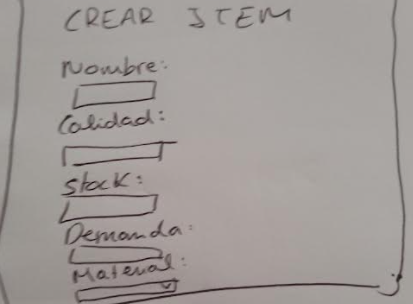 CREAR ITEM
Nombre:
Calidad:
Stock:
Demanda:
Material: